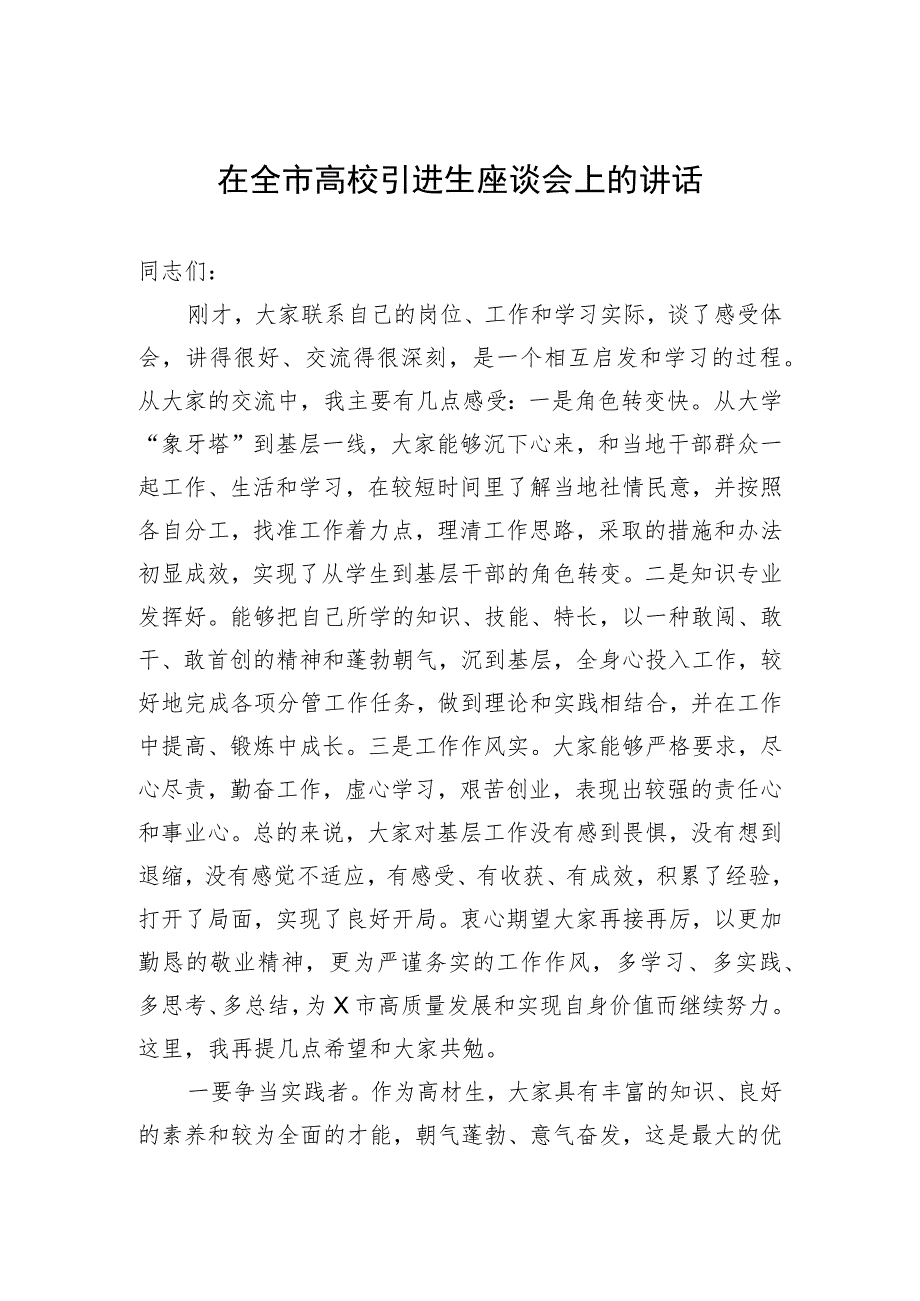 在全市高校引进生座谈会上的讲话
同志们：
刚才，大家联系自己的岗位、工作和学习实际，谈了感受体
会，讲得很好、交流得很深刻，是一个相互启发和学习的过程。
从大家的交流中，我主要有几点感受：一是角色转变快。从大学
“象牙塔”到基层一线，大家能够沉下心来，和当地干部群众一
起工作、生活和学习，在较短时间里了解当地社情民意，并按照
各自分工，找准工作着力点，理清工作思路，采取的措施和办法
初显成效，实现了从学生到基层干部的角色转变。二是知识专业
发挥好。能够把自己所学的知识、技能、特长，以一种敢闯、敢
干、敢首创的精神和蓬勃朝气，沉到基层，全身心投入工作，较
好地完成各项分管工作任务，做到理论和实践相结合，并在工作
中提高、锻炼中成长。三是工作作风实。大家能够严格要求，尽
心尽责，勤奋工作，虚心学习，艰苦创业，表现出较强的责任心
和事业心。总的来说，大家对基层工作没有感到畏惧，没有想到
退缩，没有感觉不适应，有感受、有收获、有成效，积累了经验，
打开了局面，实现了良好开局。衷心期望大家再接再厉，以更加
勤恳的敬业精神，更为严谨务实的工作作风，多学习、多实践、
多思考、多总结，为X市高质量发展和实现自身价值而继续努力。
这里，我再提几点希望和大家共勉。
一要争当实践者。作为高材生，大家具有丰富的知识、良好
的素养和较为全面的才能，朝气蓬勃、意气奋发，这是最大的优